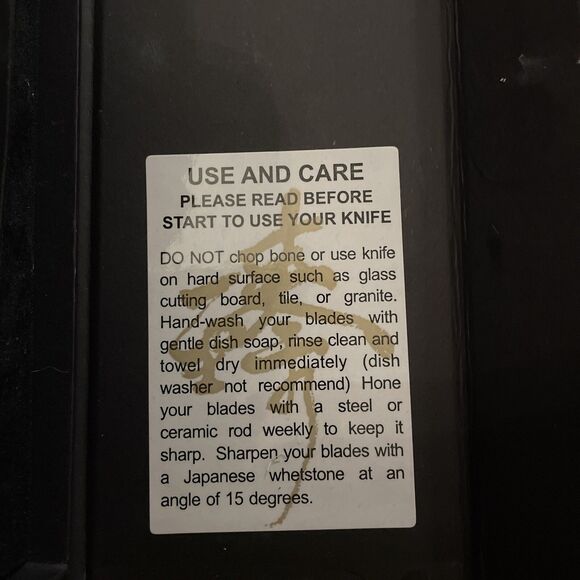 USE AND CARE
PLEASE READ BEFORE
START TO USE YOUR KNIFE
DO NOT chop bone or use knife
on hard surface such as glass
cutting board, tile, or granite.
Hand-wash your blades with
gentle dish soap, rinse clean and
towel dry immediately (dish
washer not recommend) Hone
your blades with a steel or
ceramic rod weekly to keep it
sharp. Sharpen your blades with
a Japanese whetstone at an
angle of 15 degrees.